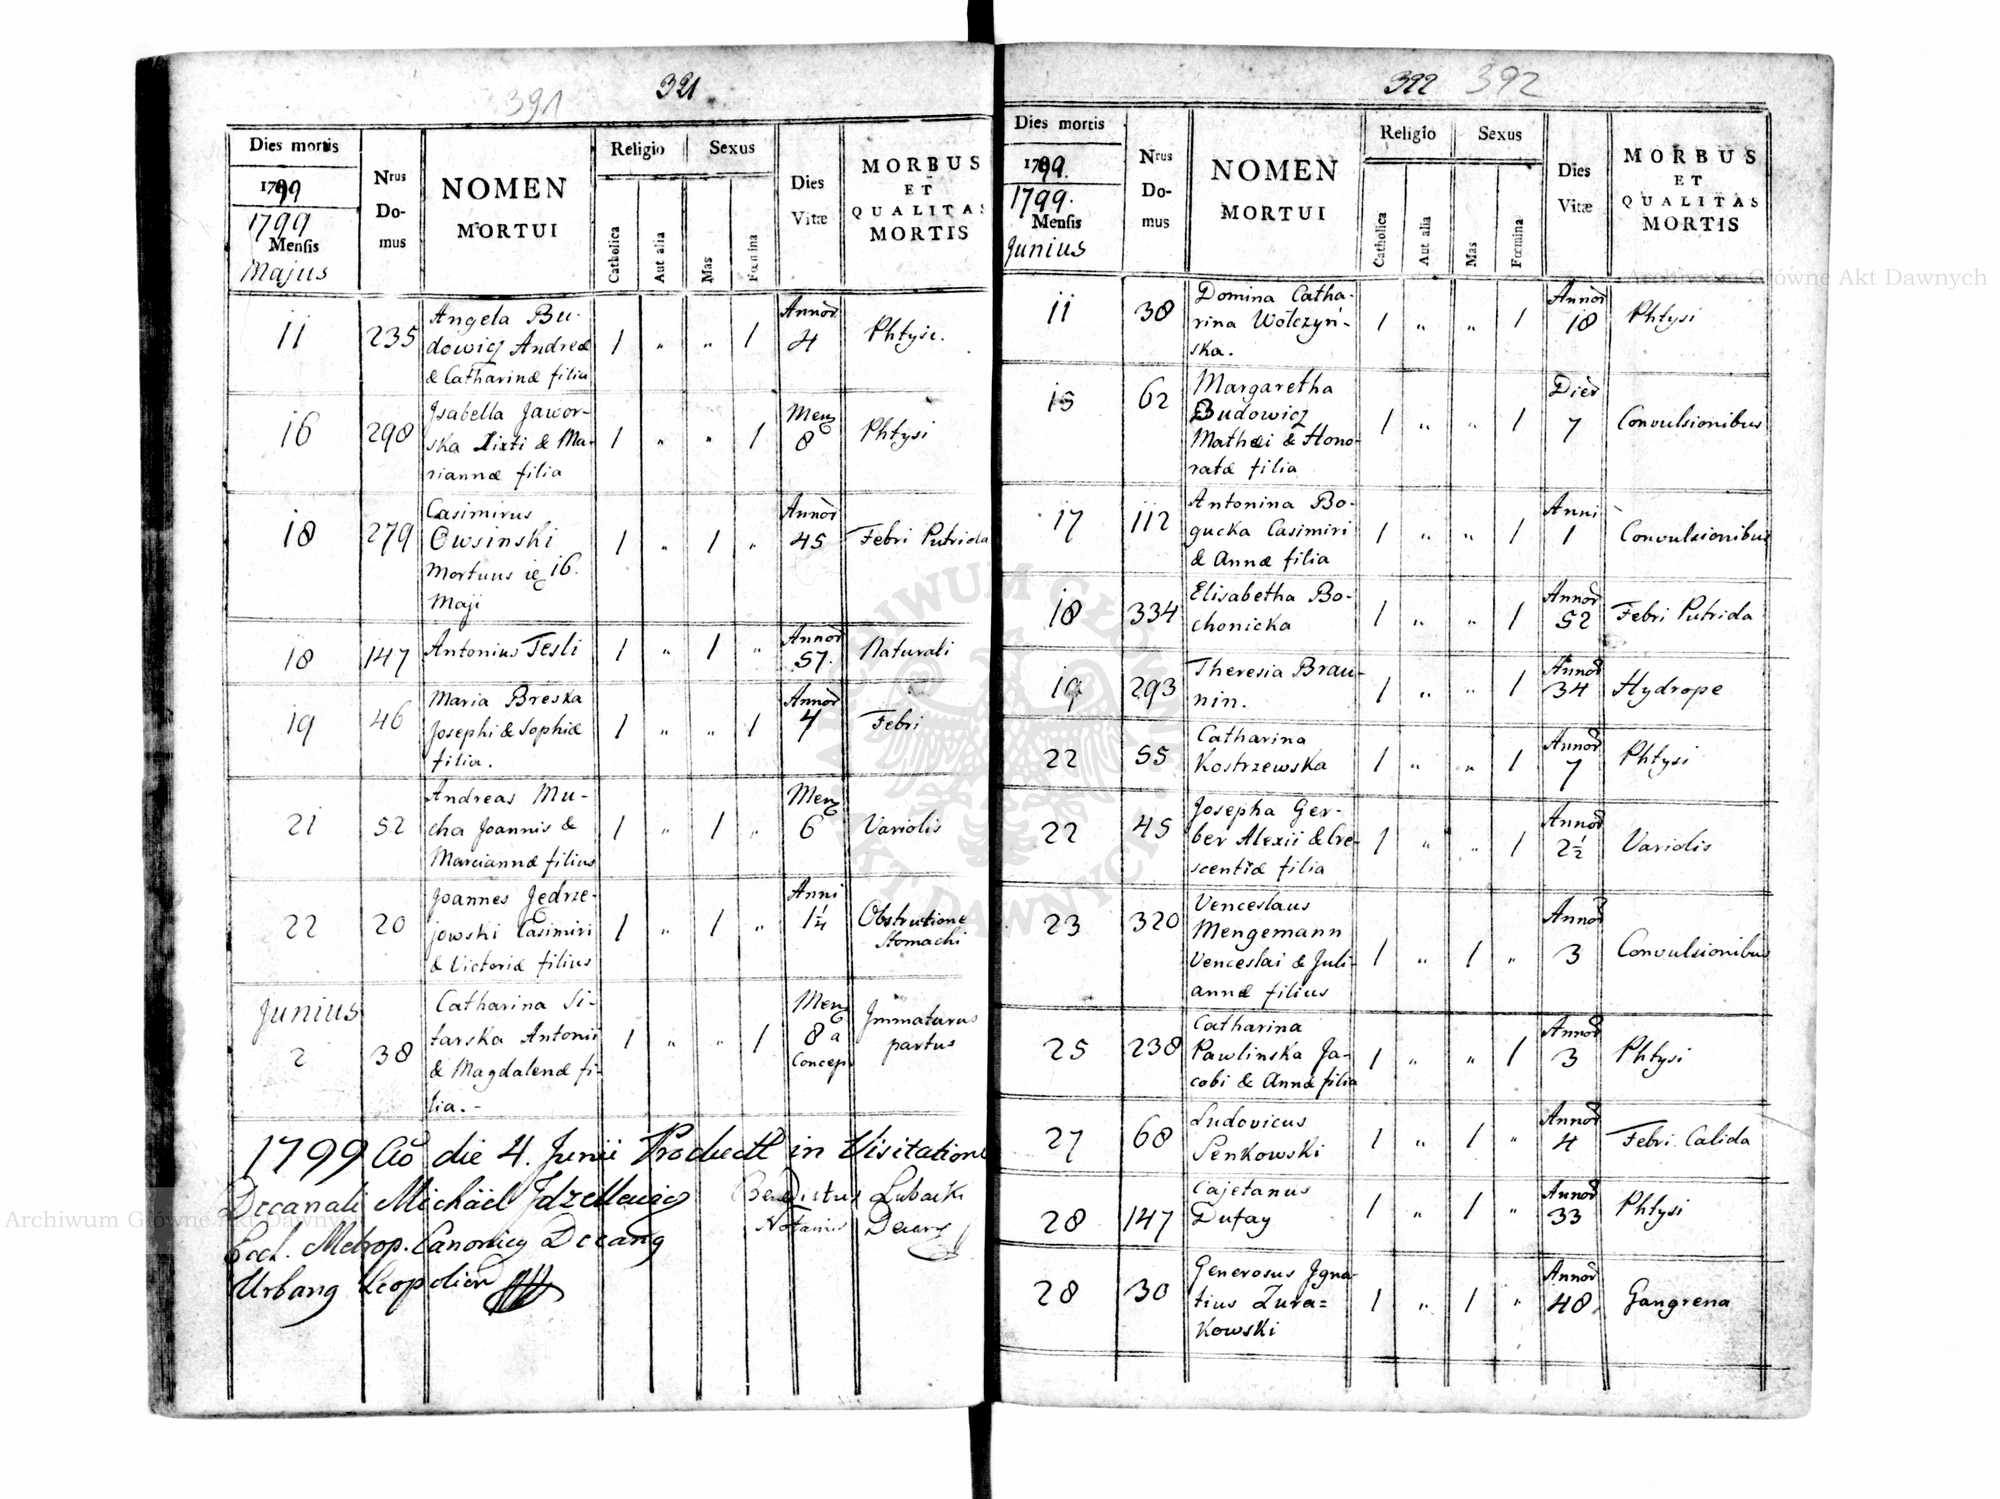 391 321
Dies mortis
1799
1799
Mensis
Majus
Nrus
Do-
mus
NOMEN
MORTUI
Religio
Catholica
Aut alia
Sexus
Mas
Fœmina
Dies
Vitæ
MORBUS
ET
QUALITAS
MORTIS
11 235 Angela Bu- 1 " " 1 Annor 4 Phtysi.
dowicz Andreæ
& Catharinæ filia
16 298 Isabella Jawor- 1 " " 1 Mens 8 Phtysi
ska Sixti & Ma-
riannæ filia
18 279 Casimirus 1 " 1 " Annor 45 Febri Putrida
Owsinski
Mortuus 16.
Maji
18 147 Antonius Tesli 1 " 1 " Annor 57. Naturali
19 46 Maria Breska 1 " " 1 Annor 4 Febri
Josephi & Sophiæ
filia.
21 52 Andreas Mu- 1 " 1 " Mens 6 Variolis
cha Joannis &
Mariannæ filius
22 20 Joannes Jedrze- 1 " 1 " Anni 1¼ Obstrutione
jowski Casimiri Stomachi
& Victoriæ filius
Junius
2 38 Catharina Si- 1 " " 1 Mens 8 a Concep. Immaturus
tarska Antonii partus
& Magdalenæ fi-
lia. -
1799 Aō die 4. Junii Product in Visitatione
Decanali Michäel
Benedictus Lubacki
Eccl. Metrop. Canonicg Decang
Notarius
Urbang Leopolien
392 392
Dies mortis
1799.
1799.
Mensis
Junius
Nrus
Do-
mus
NOMEN
MORTUI
Religio
Catholica
Aut alia
Sexus
Mas
Fœmina
Dies
Vitæ
MORBUS
ET
QUALITAS
MORTIS
11 38 Domina Catha- 1 " " 1 Annor 18 Phtysi
rina Wołczyń-
ska.
15 62 Margaretha 1 " " 1 Dier 7 Convulsionibus
Budowicz
Mathæi & Hono-
ratæ filia
17 112 Antonina Bo- 1 " " 1 Anni 1 Convulsionibus
gucka Casimiri
& Annæ filia
18 334 Elisabetha Bo- 1 " " 1 Annor 52 Febri Putrida
chonicka
19 293 Theresia Brau- 1 " " 1 Annor 34 Hydrope
nin.
22 55 Catharina 1 " " 1 Annor 7 Phtysi
Kostrzewska
22 45 Josepha Ger- 1 " " 1 Annor 2½ Variolis
ber Alexii & Cre-
scentiæ filia
23 320 Venceslaus 1 " 1 " Annor 3 Convulsionibus
Mengemann
Venceslai & Juli-
annæ filius
25 238 Catharina 1 " " 1 Annor 3 Phtysi
Pawlinska Ja-
cobi & Annæ filia
27 68 Ludovicus 1 " 1 " Annor 4 Febri Calida
Senkowski
28 147 Cajetanus 1 " 1 " Annor 33 Phtysi
Dufay
28 30 Generosus Igna- 1 " 1 " Annor 48. Gangrena
tius Zura=
kowski
Archiwum Główne Akt Dawnych
Archiwum Główne Akt Dawnych
ARCHIWUM GŁÓWNE AKT DAWNYCH